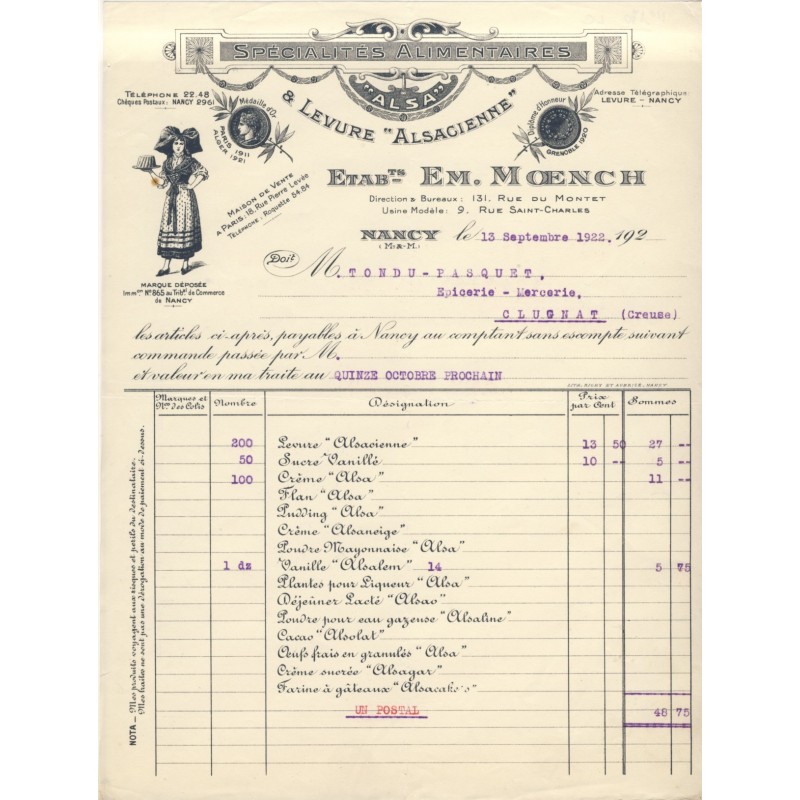 SPÉCIALITÉS ALIMENTAIRES
"ALSA"
& LEVURE "ALSACIENNE"
TÉLÉPHONE 22.48
Chèques Postaux: NANCY 2961
Médaille d'Or
PARIS 1911
ALGER 1921
Diplôme d'Honneur
GRENOBLE 1920
Adresse Télégraphique:
LEVURE - NANCY
MAISON DE VENTE
A PARIS: 18, Rue Pierre Levée
TÉLÉPHONE: Roquette 54.84
ETABTS EM. MŒNCH
Direction & Bureaux: 131, RUE DU MONTET
Usine Modèle: 9, RUE SAINT-CHARLES
NANCY le 13 Septembre 1922. 192
(M.&M.)
MARQUE DÉPOSÉE
Imm.on No 865 au Tribal de Commerce
de NANCY
Doit
M. TONDU-PASQUET,
Epicerie - Mercerie,
CLUGNAT (Creuse)
les articles ci-après, payables à Nancy au comptant sans escompte suivant
commande passée par M.
et valeur en ma traite au QUINZE OCTOBRE PROCHAIN
Marques et Nos des Colis Nombre Désignation Prix par Cent Sommes
200 Levure "Alsacienne" 13 50 27 --
50 Sucre Vanillé 10 -- 5 --
100 Crème "Alsa" 11 --
Flan "Alsa"
Pudding "Alsa"
Crème "Alsaneige"
Poudre Mayonnaise "Alsa"
1 dz Vanille "Alsalem" 14 5 75
Plantes pour Liqueur "Alsa"
Déjeûner Lacté "Alsao"
Poudre pour eau gazeuse "Alsaline"
Cacao "Alsolat"
Œufs frais en granulés "Alsa"
Crème sucrée "Alsagar"
Farine à gâteaux "Alsacake's"
UN POSTAL 48 75
NOTA — Mes produits voyagent aux risques et périls du destinataire.
Mes traites ne sont pas une dérogation au mode de paiement ci-dessus.